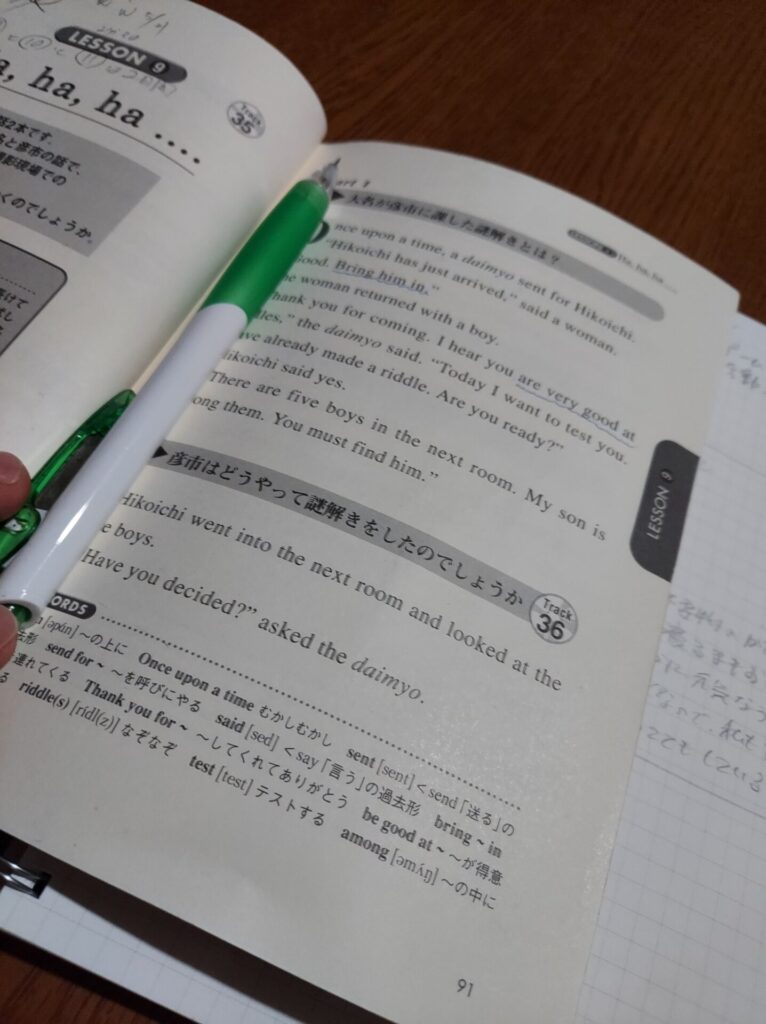 LESSON 9
ha, ha ....
Track 35
話2本です。
と彦市の話で、
影現場での
くのでしょうか。
大名が彦市に課した謎解きとは？
Ha, ha, ha ....
nce upon a time, a daimyo sent for Hikoichi.
"Hikoichi has just arrived," said a woman.
ood. Bring him in."
e woman returned with a boy.
hank you for coming. I hear you are very good at
les," the daimyo said. "Today I want to test you.
ve already made a riddle. Are you ready?"
ikoichi said yes.
There are five boys in the next room. My son is
ong them. You must find him."
LESSON 9
彦市はどうやって謎解きをしたのでしょうか
Track 36
Hikoichi went into the next room and looked at the
e boys.
Have you decided?" asked the daimyo.
ORDS
[əpán] ～の上に Once upon a time むかしむかし sent [sent] < send「送る」の
去形 send for ~ ～を呼びにやる said [sed] < say「言う」の過去形 bring ~ in
連れてくる Thank you for ~ ～してくれてありがとう be good at ~ ～が得意
る riddle(s) [rídl(z)] なぞなぞ test [test] テストする among [əmʌ́ŋ] ～の中に
91